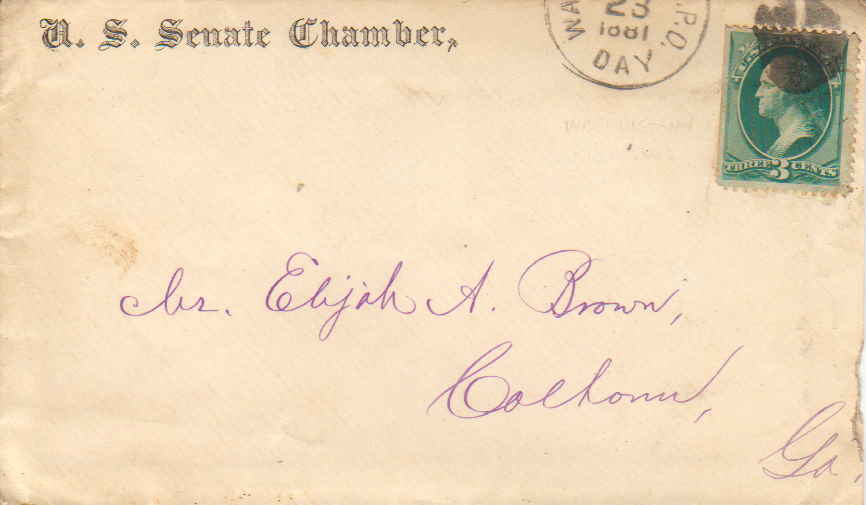 U. S. Senate Chamber,
WA P.O.
23
1881
DAY
THREE 3 CENTS
Mr. Elijah A. Brown,
Calhoun,
Ga,